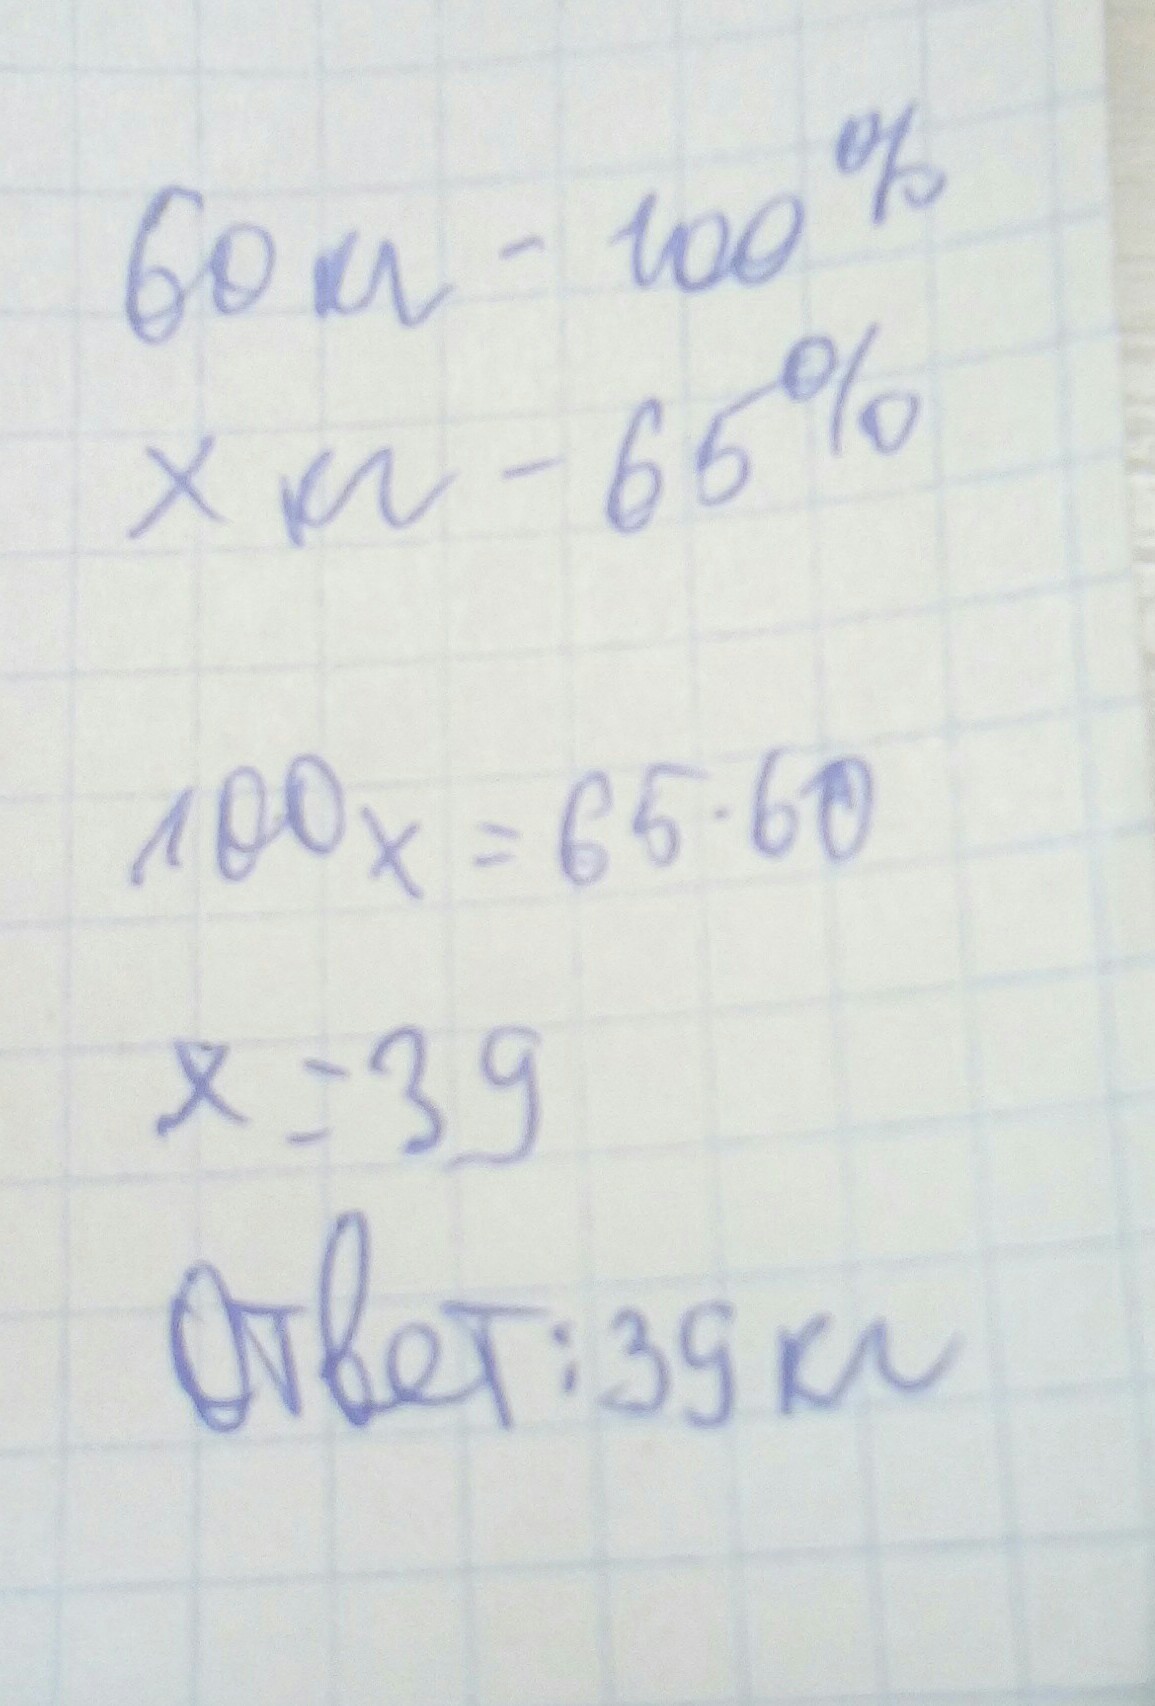 60 кг - 100%
x кг - 65%
100x = 65·60
x = 39
Ответ: 39 кг